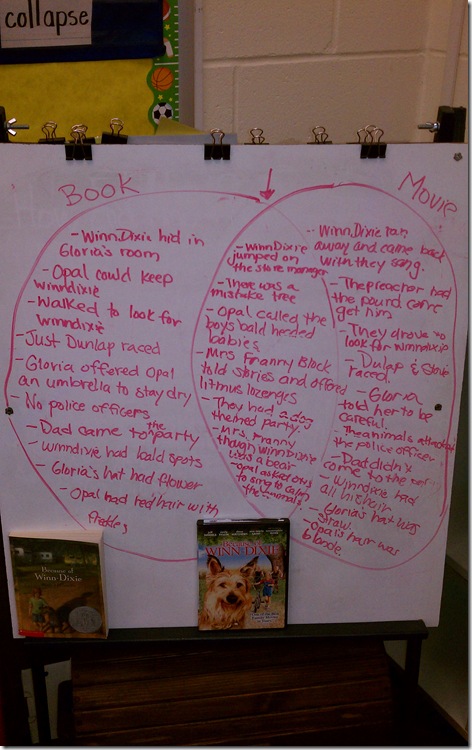 collapse
Book
- Winn Dixie hid in
Gloria's room
- Opal could keep
winndixie
- Walked to look for
winndixie
- Just Dunlap raced
- Gloria offered Opal
an umbrella to stay dry
- No police officers
- Dad came to the party
- winndixie had bald spots
- Gloria's hat had flower
- Opal had red hair with
- WinnDixie
jumped on
the store manager
- There was a
mistake tree
- Opal called the
boys bald headed
babies
- Mrs Franny Block
told stories and offered
litmus lozenges
- They had a dog
themed party
- Mrs. Franny
though winn Dixie
was a bear
- opal asked otis
to sing to calm
the animals.
Movie
- Winn Dixie ran
away and came back
with they sang.
- The preacher had
the pound come
get him
- They drove to
look for winndixie
- Dulap & Stevie
raced.
- Gloria
told her to be
careful.
- The animals
the police officer
- Dad didn't
come to the
- Winndixie had
all his hair
- Gloria's hat was
straw.
- Opal's hair was
blonde.
Because of
Winn-Dixie
WINN-DIXIE